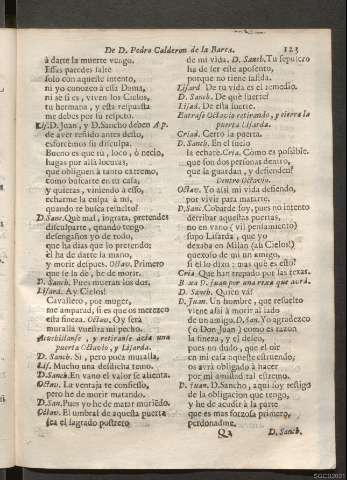 De D. Pedro Calderon de la Barca.
123
à darte la muerte vengo.
Essas paredes falte
solo con aqueste intento,
ni yo conozco à essa Dama,
ni sè si es, viven los Cielos,
tu hermana, y esta respuesta
me debes por su respeto.
Lis. D. Juan, y D. Sancho deben Ap.
de aver reñido antes desto,
esforcemos su disculpa.
Bueno es que tu, loco, ò necio,
hagas por allà locuras,
que obliguen à tanto extremo,
como buscarte en tu casa,
y quieras, viniendo à esso,
echarme la culpa à mi,
quando te busca resuelto?
D. San. Què mal, ingrata, pretendes
disculparte, quando tengo
desengaños yo de todo,
que ha dias que lo pretendo:
èl ha de darte la mano,
y morir despues. Octav. Primero
que se la dè, he de morir.
D. Sanch. Pues mueran los dos.
Lisard. Ay Cielos!
Cavallero, por muger,
me amparad, si es que os merezco
esta fineza. Octav. Oy serà
muralla vuestra mi pecho.
Acuchillanse, y retiranse àcia una
puerta Octavio, y Lisarda.
D. Sanch. Si, pero poca muralla,
Lis. Mucho una desdicha temo.
D. Sanch. En vano el valor se alienta.
Octav. La ventaja te confiesso,
pero he de morir matando.
D. San. Pues yo he de matar muriẽdo.
Octav. El umbral de aquesta puerta
sea el sagrado postrero
de mi vida. D. Sanch. Tu sepulcro
ha de ser este aposento,
porque no tiene salida.
Lisard. De tu vida es el remedio.
D. Sanch. De què suerte?
Lisard. De esta suerte.
Entrase Octavio retirando, y cierra la
puerta Lisarda.
Criad. Cerrò la puerta.
D. Sanch. En el suelo
la echarè. Cria. Como es possible,
que son dos personas dentro,
que la guardan, y defienden?
Dentro Octavio.
Octav. Yo assi mi vida defiendo,
por vivir para matarte.
D. San. Cobarde soy, pues no intento
derribar aquestas puertas,
no en vano (vil pensamiento)
supo Lisarda, que yo
dexaba en Milan (ah Cielos!)
quexoso de mi un amigo,
si èl lo dixo; mas què es esto?
Cria. Que han trepado por las rexas.
Baxa D. Juan por una rexa que avrà.
D. Sanch. Quien và?
D. Juan. Un hombre, que resuelto
viene assi à morir al lado
de un amigo. D. San. Yo agradezco
(ò Don Juan) como es razon
la fineza, y el deseo,
pues no dudo, que el oir
en mi casa aqueste estruendo,
os avrà obligado à hacer
por mi amistad tal extremo.
D. Juan. D. Sancho, aqui soy testigo
de la obligacion que tengo,
y he de acudir à la parte
que es mas forzosa primero,
perdonadme.
Q2
D. Sanch.
SGCB2021